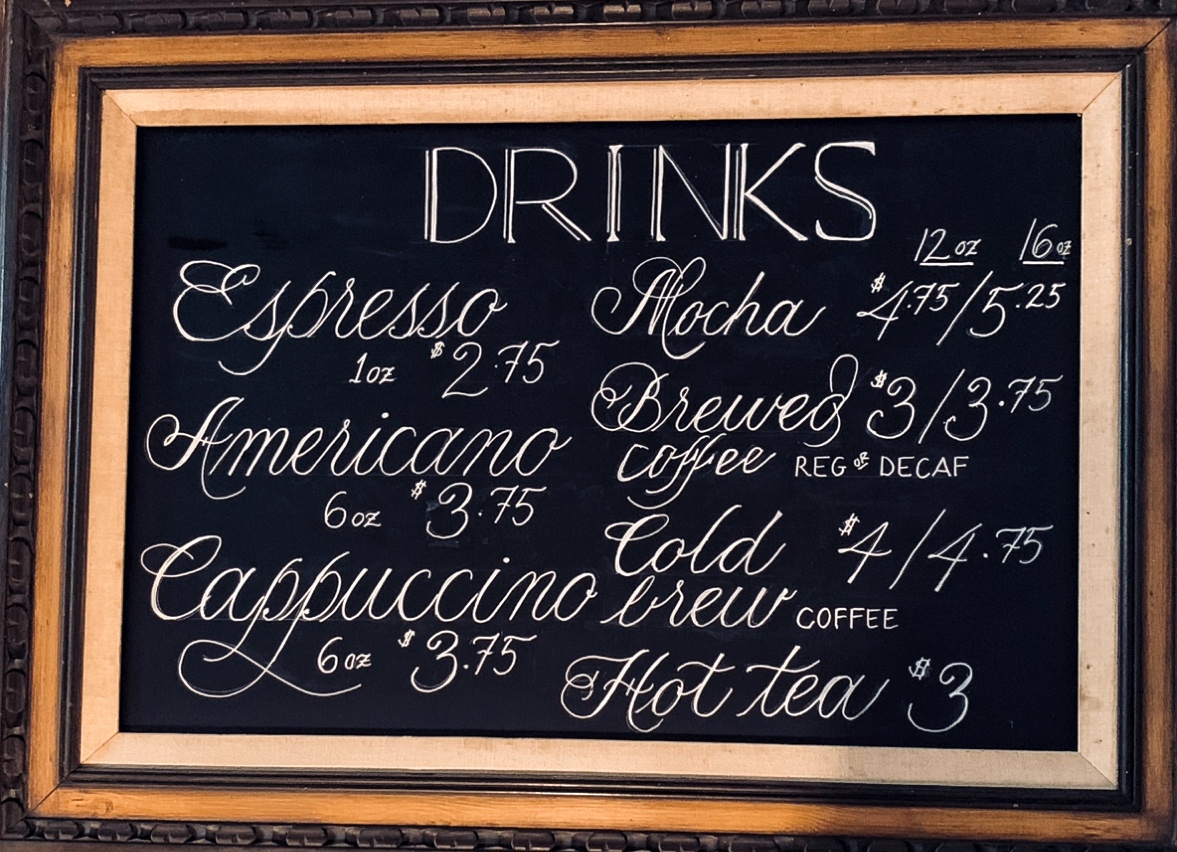 DRINKS
Espresso
1oz $2.75
Americano
6oz $3.75
Cappuccino
6oz $3.75
12oz 16oz
Mocha $4.75/5.25
Brewed $3/3.75
coffee REG OR DECAF
Cold $4/4.75
brew COFFEE
Hot tea $3